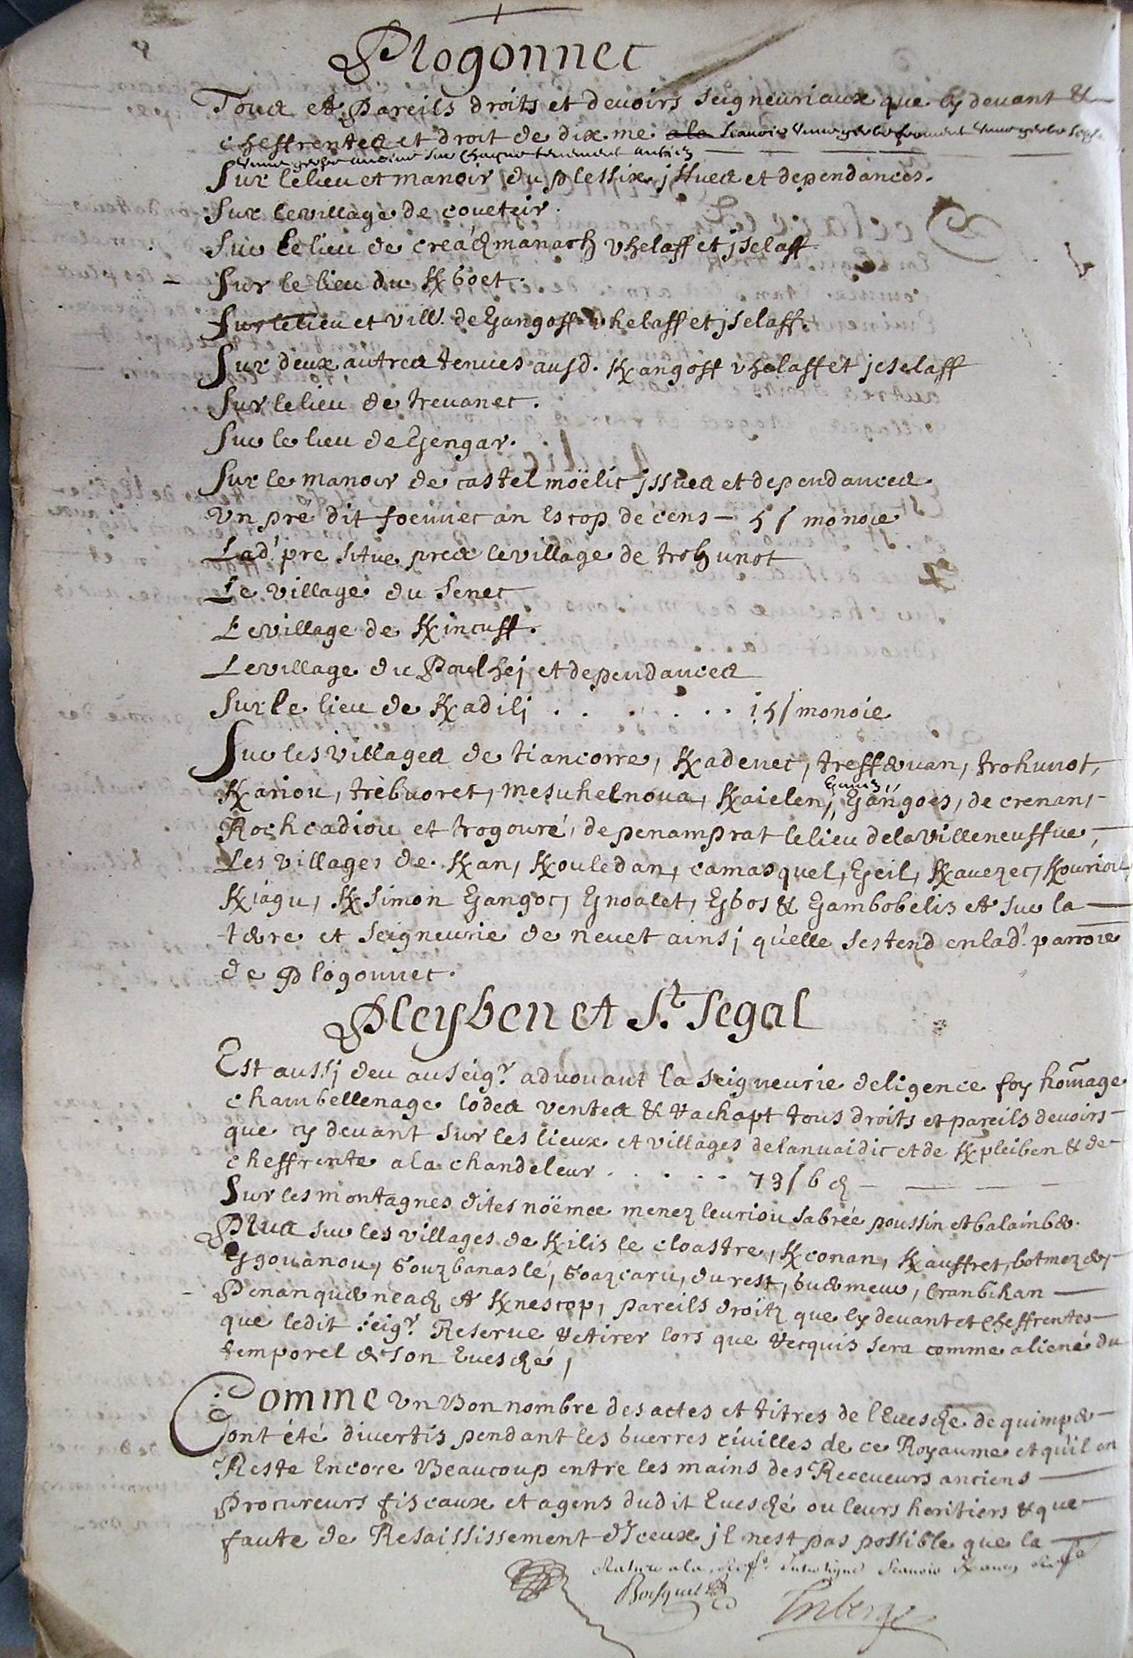 Plogonnec
Tous et Pareils droits et devoirs seigneuriaux que cy devant &
cheffrentes et droit de dixme a la scavoir une gerbe froment une gerbe
une gerbe avoine sur chaque tenement
Sur le lieu et manoir du plessix, jssues et dependances.
Sur le village de coueteir.
Sur le lieu de creac͞hmanach vhelaff et jselaff
Sur le lieu du Ꝃboet.
Sur le lieu et vill. de Gangoff vhelaff et jselaff.
Sur deux autres tenues ausd. Ꝃangoff vhelaff et jeselaff
Sur le lieu de trevanec.
Sur le lieu de Gengar.
Sur le manoir de castel moëlic jssues et dependances
Vn pré dit foennec an Escop de cens – 5 s monoie
Lad. pre situe pres le village de trohunot
Le village du Senec
Le village de Ꝃincuff.
Le village du Poulhej et dependances
Sur le lieu de Ꝃadilj . . . . . . . 15 s monoie
Sur les villages de tiancorre, Ꝃadenec, treffævan, trohunot,
Ꝃariou, trebvoret, mesuhelnoua, Ꝃaielen, Gangoes, de crenan,
Rochcadiou et trogouré, de penamprat le lieu de la Villeneuffue,
Les villages de Ꝃan, Ꝃouledan, camasquel, Ꝃauezec, Ꝃouriou,
Ꝃiagu, Ꝃsimon Gangoc, Gnoalet, Gbos & Gambobeliz et sur la
terre et seigneurie de nevet ainsj qu'elle s'estend en lad. parroie
de Plogonnec.
Pleyben et St. Segal
Est aussj deu au seigr. advouant la seigneurie de ligence foy hom̄age
chambellenage lodes ventes & rachapt tous droits et pareils devoirs
que cy devant sur les lieux et villages de lanvaidic et de Ꝃpleiben & de
cheffrente a la chandeleur . . . . . 73 s 6 d
Sur les montagnes dites noëmee menez leuriou sabrée poussin et balainbæ.
Plus sur les villages de Ꝃilis le cloastre, Ꝃconan, Ꝃauffret, botmez &
Ggouanou, Gouzbanaslé, Goazcaru, du rest, bran bihan
Penanquænéach et Ꝃnescop, pareils droitz que cy devant et cheffrentes
que ledit seigr. Reserve retirer lors que recquis sera comme aliené du
temporel de son Evesché,
Comme Vn Bon nombre des actes et titres de l'Evesché de quimper
ont été divertis pendant les Guerres civilles de ce Royaume et qu'il en
Reste Encore Beaucoup entre les mains des Receveurs anciens
Procureurs fiscaux et agens dudit Evesché ou leurs heritiers & que
faute de Resaississement d'Iceux jl n'est pas possible que la
Rature a la
Bosquet